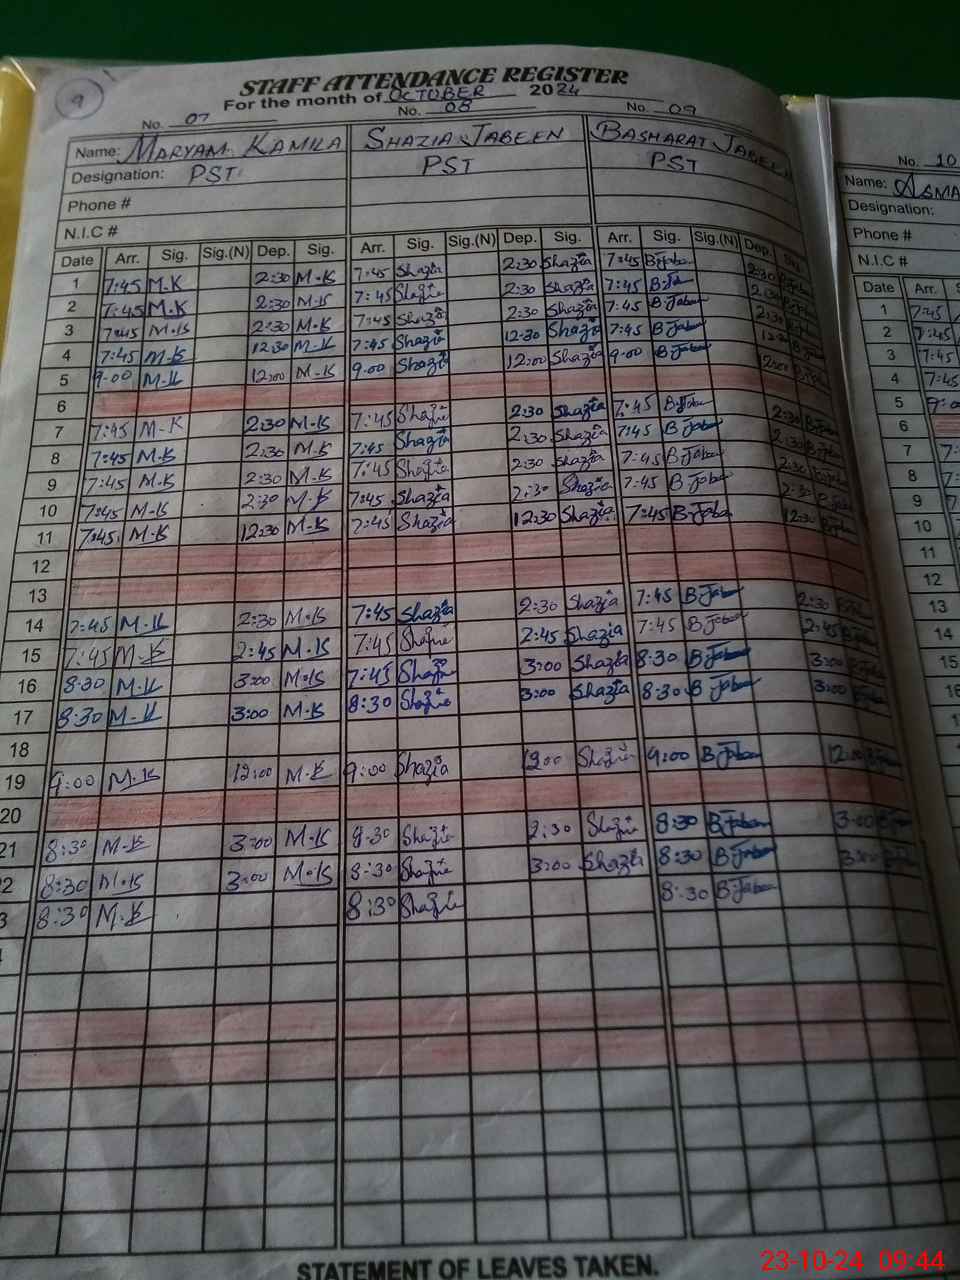 9
STAFF ATTENDANCE REGISTER
For the month of OCTOBER 2024
No. 07 No. 08 No. 09
Name: MARYAM KAMILA SHAZIA JABEEN BASHARAT JABEEN
Designation: PST PST PST
Phone #
N.I.C #
Date Arr. Sig. Sig.(N) Dep. Sig. Arr. Sig. Sig.(N) Dep. Sig. Arr. Sig. Sig.(N) Dep. Sig.
1 7:45 M.K 2:30 M.K 7:45 Shazia 2:30 Shazia 7:45 B.Jabeen 2:30
2 7:45 M.K 2:30 M.K 7:45 Shazia 2:30 Shazia 7:45 B.Jabeen 2:30
3 7:45 M.K 2:30 M.K 7:45 Shazia 2:30 Shazia 7:45 B.Jabeen 2:30
4 7:45 M.K 12:30 M.K 7:45 Shazia 12:30 Shazia 7:45 B.Jabeen 12:30
5 9:00 M.K 12:00 M.K 9:00 Shazia 12:00 Shazia 9:00 B.Jabeen 12:00
6
7 7:45 M.K 2:30 M.K 7:45 Shazia 2:30 Shazia 7:45 B.Jabeen 2:30
8 7:45 M.K 2:30 M.K 7:45 Shazia 2:30 Shazia 7:45 B.Jabeen 2:30
9 7:45 M.K 2:30 M.K 7:45 Shazia 2:30 Shazia 7:45 B.Jabeen 2:30
10 7:45 M.K 2:30 M.K 7:45 Shazia 2:30 Shazia 7:45 B.Jabeen 2:30
11 7:45 M.K 12:30 M.K 7:45 Shazia 12:30 Shazia 7:45 B.Jabeen 12:30
12
13
14 7:45 M.K 2:30 M.K 7:45 Shazia 2:30 Shazia 7:45 B.Jabeen 2:30
15 7:45 M.K 2:45 M.K 7:45 Shazia 2:45 Shazia 7:45 B.Jabeen 2:45
16 8:30 M.K 3:00 M.K 7:45 Shazia 3:00 Shazia 8:30 B.Jabeen 3:00
17 8:30 M.K 3:00 M.K 8:30 Shazia 3:00 Shazia 8:30 B.Jabeen 3:00
18
19 9:00 M.K 12:00 M.K 9:00 Shazia 12:00 Shazia 9:00 B.Jabeen 12:00
20
21 8:30 M.K 3:00 M.K 8:30 Shazia 2:30 Shazia 8:30 B.Jabeen 3:00
2 8:30 M.K 3:00 M.K 8:30 Shazia 3:00 Shazia 8:30 B.Jabeen 3:00
3 8:30 M.K 8:30 Shazia 8:30 B.Jabeen
STATEMENT OF LEAVES TAKEN.
No. 10
Name: ASMA
Designation:
Phone #
N.I.C #
Date Arr.
1 7:45
2 7:45
3 7:45
4 7:45
5 9:0
6
7 7:
8 7:
9 7:
10 7:
11
12
13
14
15
16
23-10-24 09:44